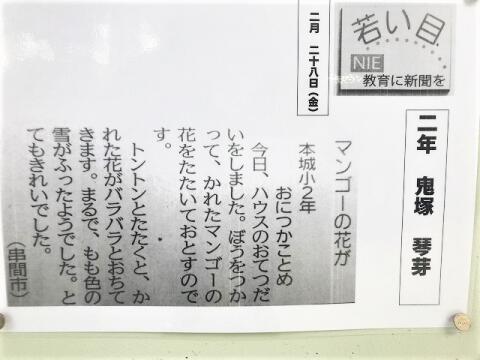 若い目
NIE
教育に新聞を
二月 二十八日(金)
二年 鬼塚 琴芽
マンゴーの花が
本城小2年
おにつかことめ
今日、ハウスのおてつだ
いをしました。ぼうをつか
って、かれたマンゴーの
花をたたいておとすので
す。
トントンとたたくと、か
れた花がバラバラとおちて
きます。まるで、もも色の
雪がふったようでした。と
てもきれいでした。
(串間市)